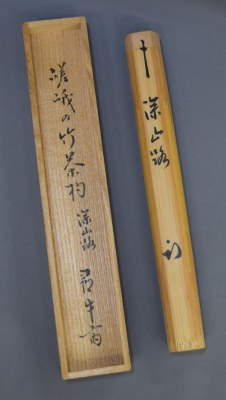 嵯峨の竹茶杓 深山路 尋牛斎
深山路